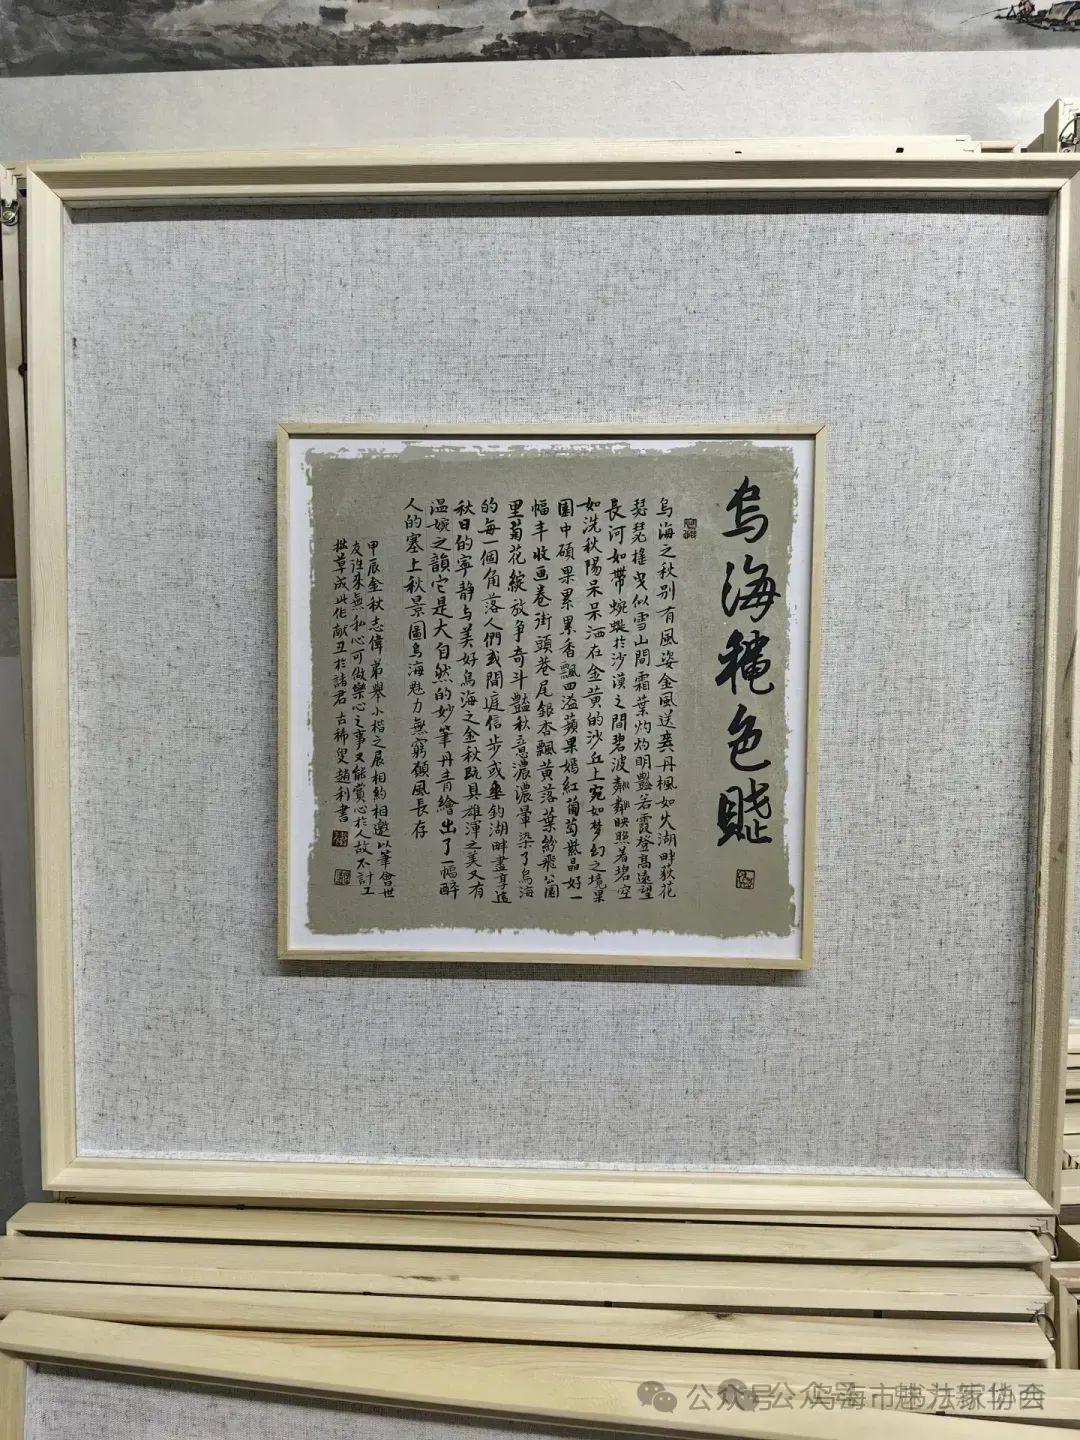 乌海秾色赋
乌海之秋别有風姿金風送爽丹楓如火湖畔荻花
瑟瑟摇曳似雪山間霜葉灼灼明豔若霞登高遠望
長河如帶蜿蜒於沙漠之間碧波粼粼映照着碧空
如洗秋陽呆呆洒在金黄的沙丘上宛如梦幻之境果
園中碩果累累香飄四溢蘋果嫣紅葡萄紫晶好一
幅丰收画卷街頭巷尾銀杏飄黄落葉紛飛公園
里菊花綻放争奇斗豔秋意濃濃暈染了烏海
的每一個角落人們或閒庭信步或垂釣湖畔盡享這
秋日的寧静与美好烏海之金秋既具雄渾之美又有
温婉之韻它是大自然的妙筆丹青繪出了一幅醉
人的塞上秋景圖烏海魅力無窮願風長存
甲辰金秋志偉弟舉小楷之展相約相邀以筆會世
友誼来無私心可做樂心之事又能賞心於人故不計工
拙草成此作献丑於諸君古稀叟趙利書
公众号·乌海市书法家协会